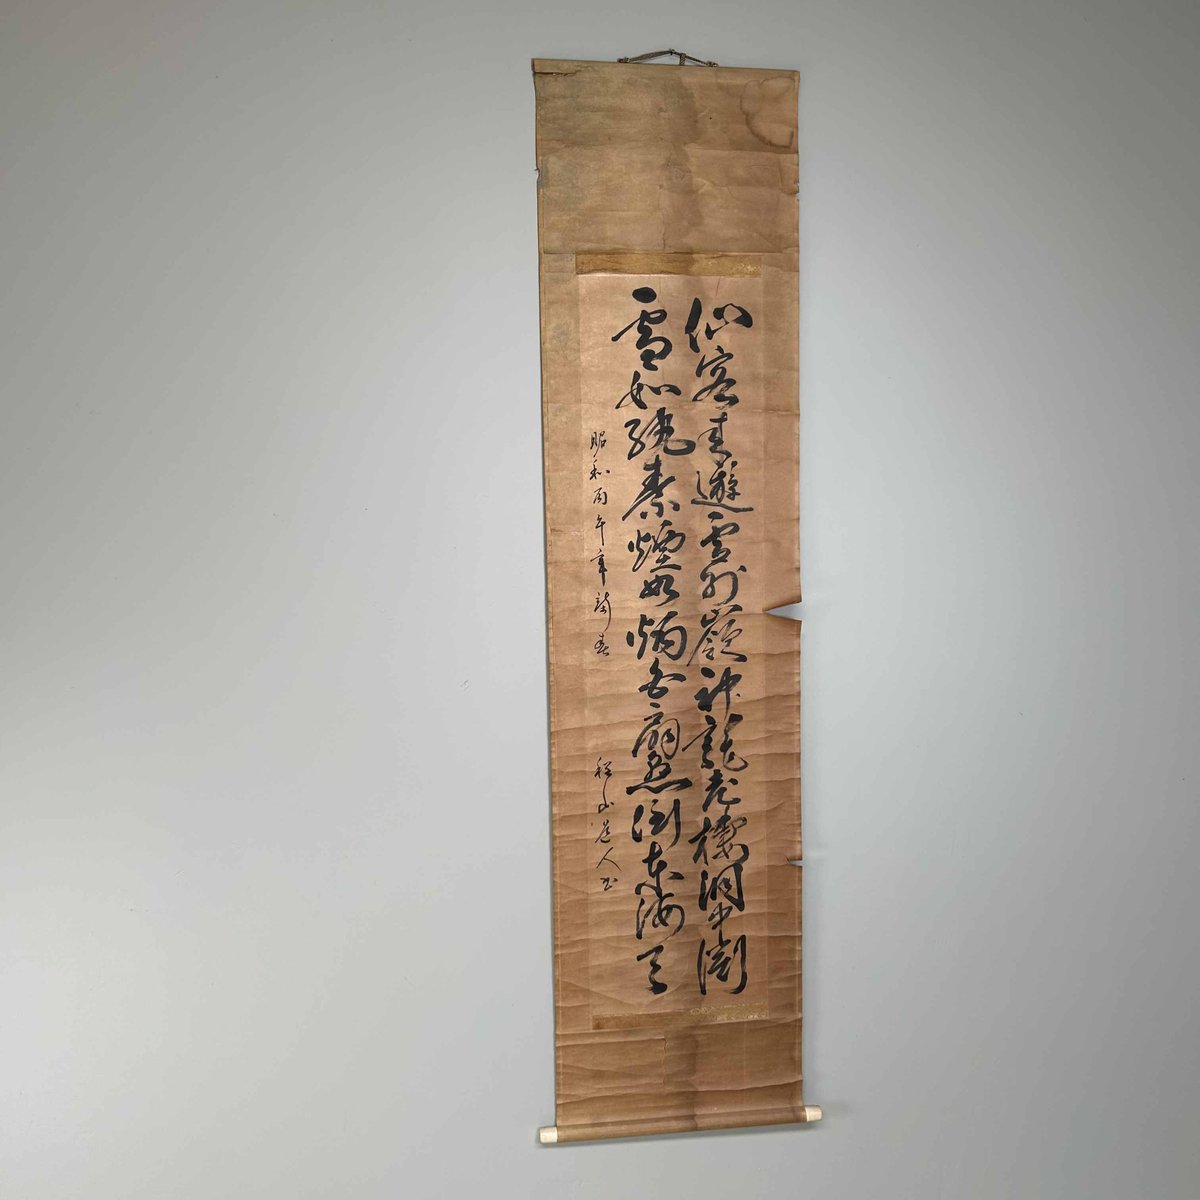 仙客来遊雲外巓神龍老棲洞中淵
雪如紈素煙如柄白扇懸倒東海天
昭和丙午年春
山道人書